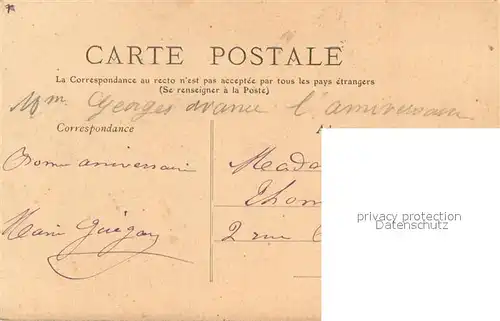 CARTE POSTALE
La Correspondance au recto n'est pas acceptée par tous les pays étrangers
(Se renseigner à la Poste)
Mm Georges l'aniversaire
Correspondance
Bonne aniversaire
Mada
Thom
Marie Guégan
2 rue
privacy protection
Datenschutz